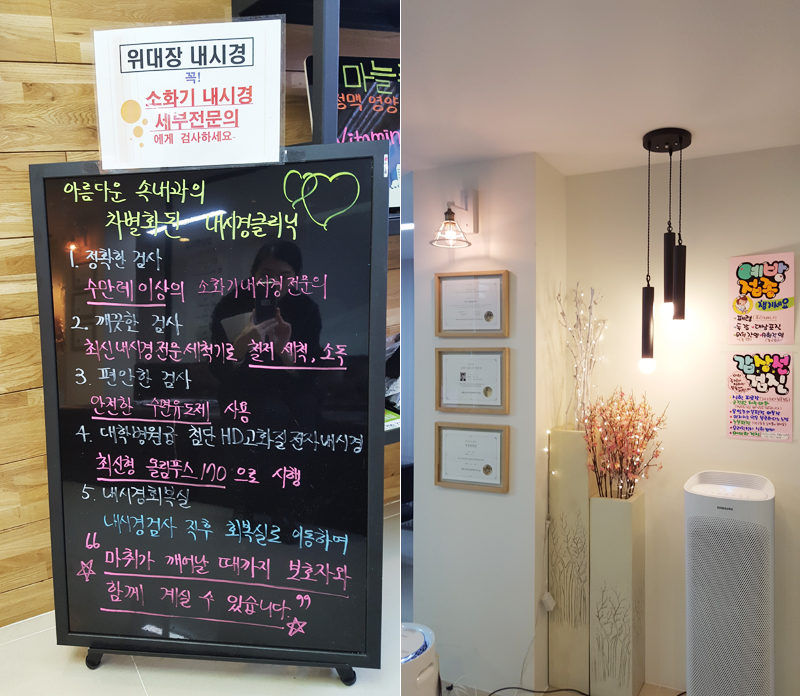 위대장 내시경
꼭!
소화기 내시경
세부전문의
에게 검사하세요.
마늘
영양
Vitamin
아름다운 속내과의
차별화된 내시경클리닉
1. 정확한 검사
수만례 이상의 소화기내시경전문의
2. 깨끗한 검사
최신내시경전문세척기로 철저 세척, 소독
3. 편안한 검사
안전한 수면유도제 사용
4. 대학병원급 첨단 HD고화질 전자내시경
최신형 올림푸스 170 으로 시행
5. 내시경회복실
내시경검사 직후 회복실로 이동하며
"마취가 깨어날 때까지 보호자와
함께 계실 수 있습니다."
예방
접종
챙기세요
-폐렴
-독감 -대상포진
갑상선
검진
SAMSUNG